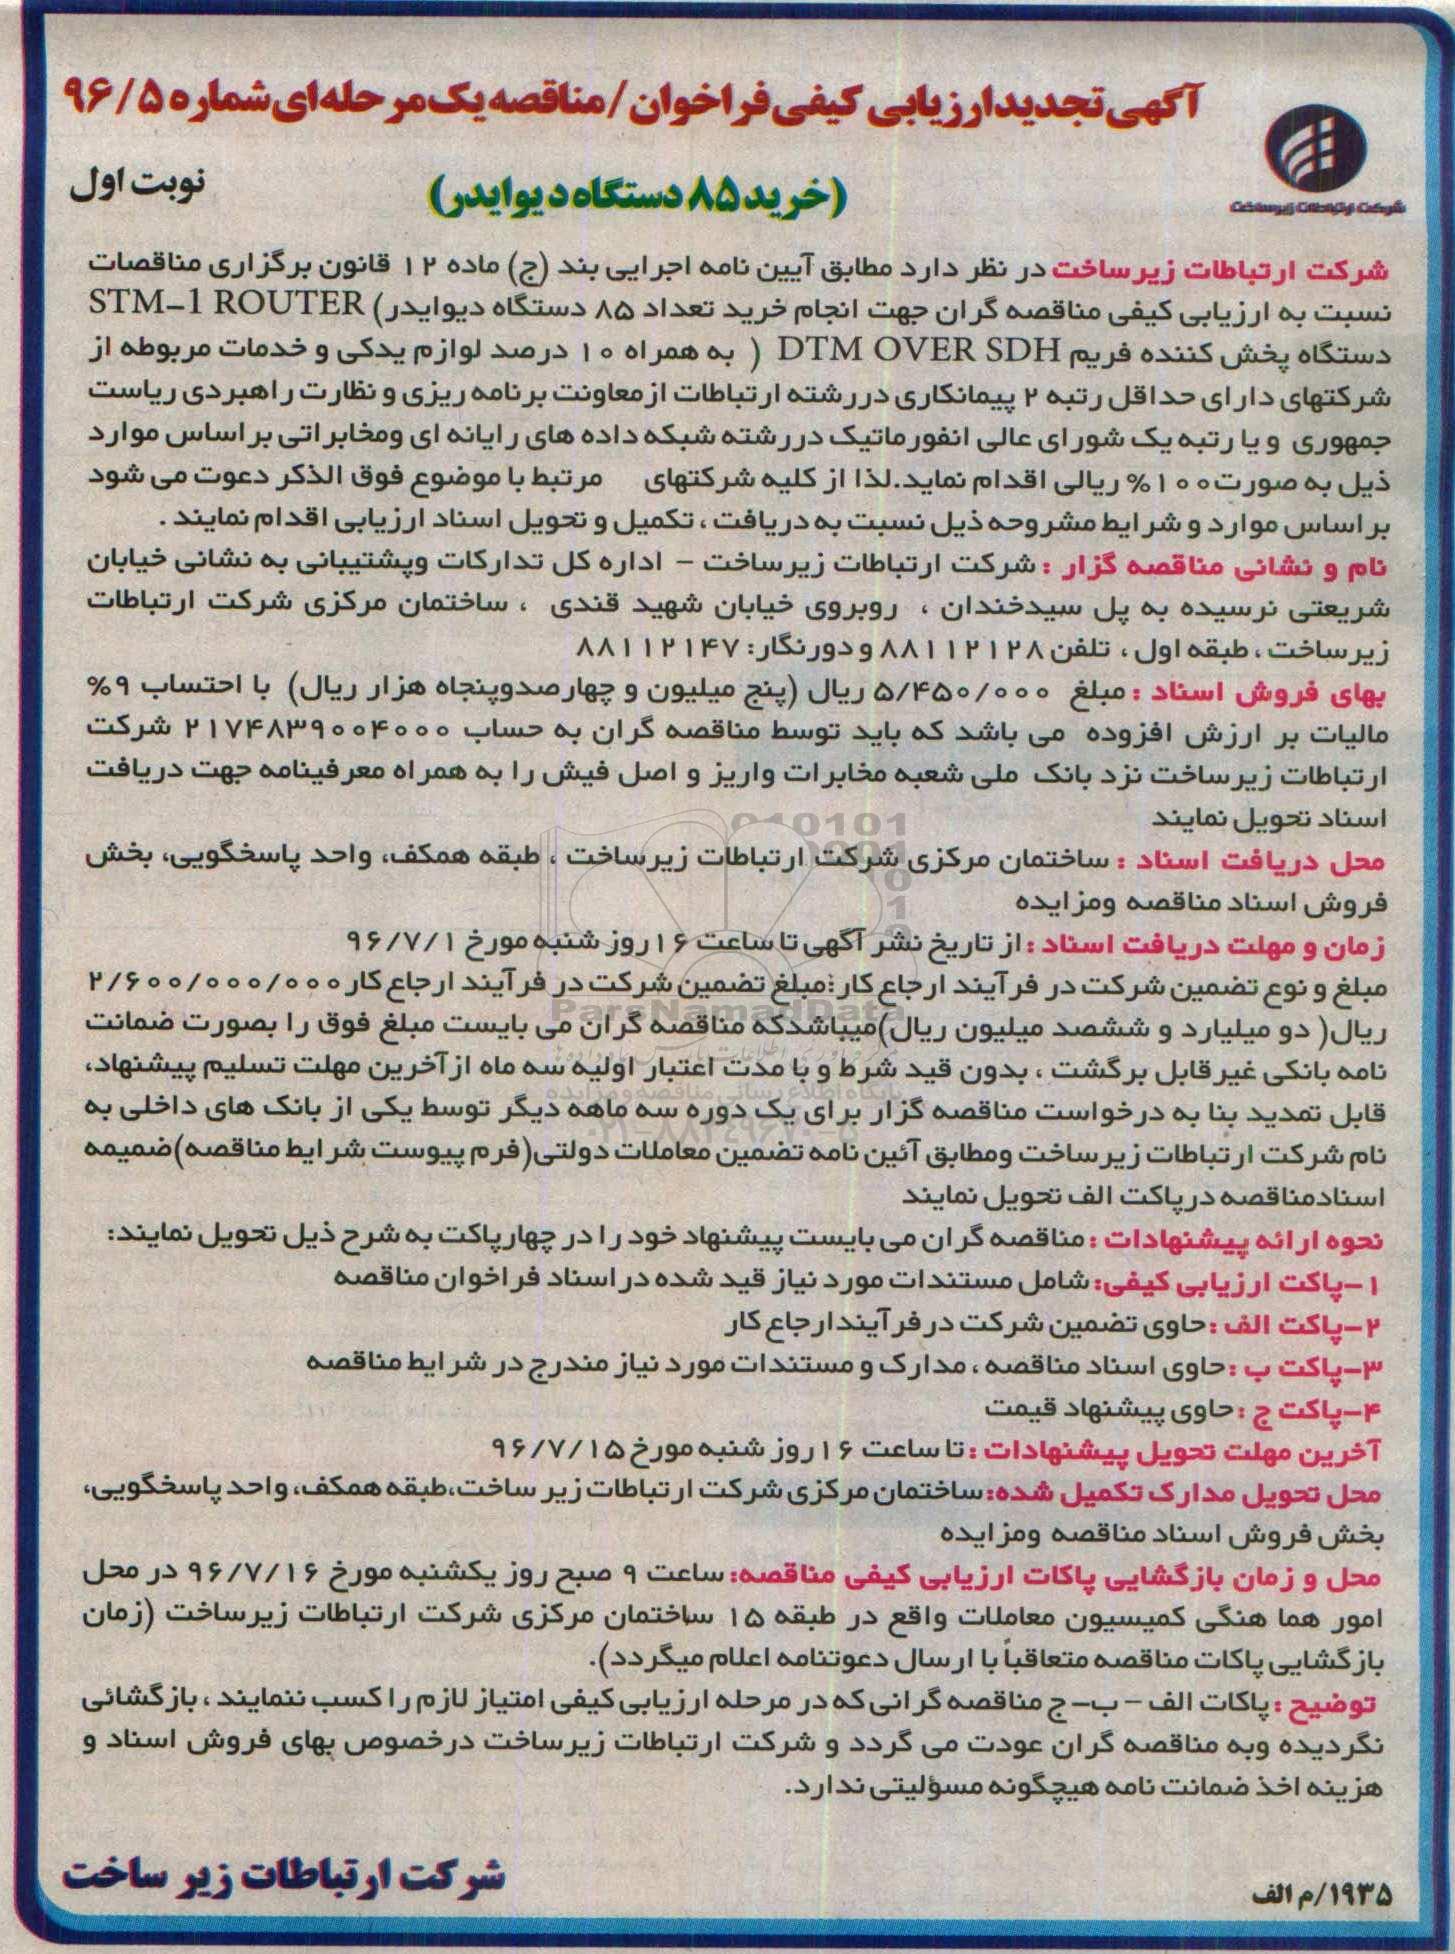 آگهی تجدید ارزیابی کیفی فراخوان / مناقصه یک مرحله ای شماره ۹۶/۵
شرکت ارتباطات زیرساخت
(خرید ۸۵ دستگاه دیوایدر)
نوبت اول
شرکت ارتباطات زیرساخت در نظر دارد مطابق آیین نامه اجرایی بند (ج) ماده ۱۲ قانون برگزاری مناقصات
نسبت به ارزیابی کیفی مناقصه گران جهت انجام خرید تعداد ۸۵ دستگاه دیوایدر) STM-1 ROUTER
دستگاه پخش کننده فریم DTM OVER SDH ( به همراه ۱۰ درصد لوازم یدکی و خدمات مربوطه از
شرکتهای دارای حداقل رتبه ۲ پیمانکاری دررشته ارتباطات ازمعاونت برنامه ریزی و نظارت راهبردی ریاست
جمهوری و یا رتبه یک شورای عالی انفورماتیک دررشته شبکه داده های رایانه ای ومخابراتی براساس موارد
ذیل به صورت ۱۰۰% ریالی اقدام نماید.لذا از کلیه شرکتهای مرتبط با موضوع فوق الذکر دعوت می شود
براساس موارد و شرایط مشروحه ذیل نسبت به دریافت ، تکمیل و تحویل اسناد ارزیابی اقدام نمایند .
نام و نشانی مناقصه گزار : شرکت ارتباطات زیرساخت – اداره کل تدارکات وپشتیبانی به نشانی خیابان
شریعتی نرسیده به پل سیدخندان ، روبروی خیابان شهید قندی ، ساختمان مرکزی شرکت ارتباطات
زیرساخت ، طبقه اول ، تلفن ۸۸۱۱۲۱۲۸ و دورنگار: ۸۸۱۱۲۱۴۷
بهای فروش اسناد : مبلغ ۵/۴۵۰/۰۰۰ ریال (پنج میلیون و چهارصدوپنجاه هزار ریال) با احتساب ۹%
مالیات بر ارزش افزوده می باشد که باید توسط مناقصه گران به حساب ۲۱۷۴۸۳۹۰۰۴۰۰۰ شرکت
ارتباطات زیرساخت نزد بانک ملی شعبه مخابرات واریز و اصل فیش را به همراه معرفینامه جهت دریافت
اسناد تحویل نمایند
محل دریافت اسناد : ساختمان مرکزی شرکت ارتباطات زیرساخت ، طبقه همکف، واحد پاسخگویی، بخش
فروش اسناد مناقصه ومزایده
زمان و مهلت دریافت اسناد : از تاریخ نشر آگهی تا ساعت ۱۶ روز شنبه مورخ ۹۶/۷/۱
مبلغ و نوع تضمین شرکت در فرآیند ارجاع کار:مبلغ تضمین شرکت در فرآیند ارجاع کار ۲/۶۰۰/۰۰۰/۰۰۰
ریال( دو میلیارد و ششصد میلیون ریال)میباشدکه مناقصه گران می بایست مبلغ فوق را بصورت ضمانت
نامه بانکی غیرقابل برگشت ، بدون قید شرط و با مدت اعتبار اولیه سه ماه ازآخرین مهلت تسلیم پیشنهاد،
قابل تمدید بنا به درخواست مناقصه گزار برای یک دوره سه ماهه دیگر توسط یکی از بانک های داخلی به
نام شرکت ارتباطات زیرساخت ومطابق آئین نامه تضمین معاملات دولتی(فرم پیوست شرایط مناقصه)ضمیمه
اسنادمناقصه درپاکت الف تحویل نمایند
نحوه ارائه پیشنهادات : مناقصه گران می بایست پیشنهاد خود را در چهارپاکت به شرح ذیل تحویل نمایند:
۱-پاکت ارزیابی کیفی: شامل مستندات مورد نیاز قید شده در اسناد فراخوان مناقصه
۲-پاکت الف : حاوی تضمین شرکت در فرآیندارجاع کار
۳-پاکت ب : حاوی اسناد مناقصه ، مدارک و مستندات مورد نیاز مندرج در شرایط مناقصه
۴-پاکت ج : حاوی پیشنهاد قیمت
آخرین مهلت تحویل پیشنهادات : تا ساعت ۱۶ روز شنبه مورخ ۹۶/۷/۱۵
محل تحویل مدارک تکمیل شده: ساختمان مرکزی شرکت ارتباطات زیر ساخت،طبقه همکف، واحد پاسخگویی،
بخش فروش اسناد مناقصه ومزایده
محل و زمان بازگشایی پاکات ارزیابی کیفی مناقصه: ساعت ۹ صبح روز یکشنبه مورخ ۹۶/۷/۱۶ در محل
امور هما هنگی کمیسیون معاملات واقع در طبقه ۱۵ ساختمان مرکزی شرکت ارتباطات زیرساخت (زمان
بازگشایی پاکات مناقصه متعاقباً با ارسال دعوتنامه اعلام میگردد).
توضیح : پاکات الف – ب- ج مناقصه گرانی که در مرحله ارزیابی کیفی امتیاز لازم را کسب ننمایند ، بازگشائی
نگردیده وبه مناقصه گران عودت می گردد و شرکت ارتباطات زیرساخت درخصوص بهای فروش اسناد و
هزینه اخذ ضمانت نامه هیچگونه مسؤلیتی ندارد.
شرکت ارتباطات زیر ساخت
۱۹۳۵/م الف
ParsNamadData
پایگاه اطلاع رسانی مناقصه و مزایده